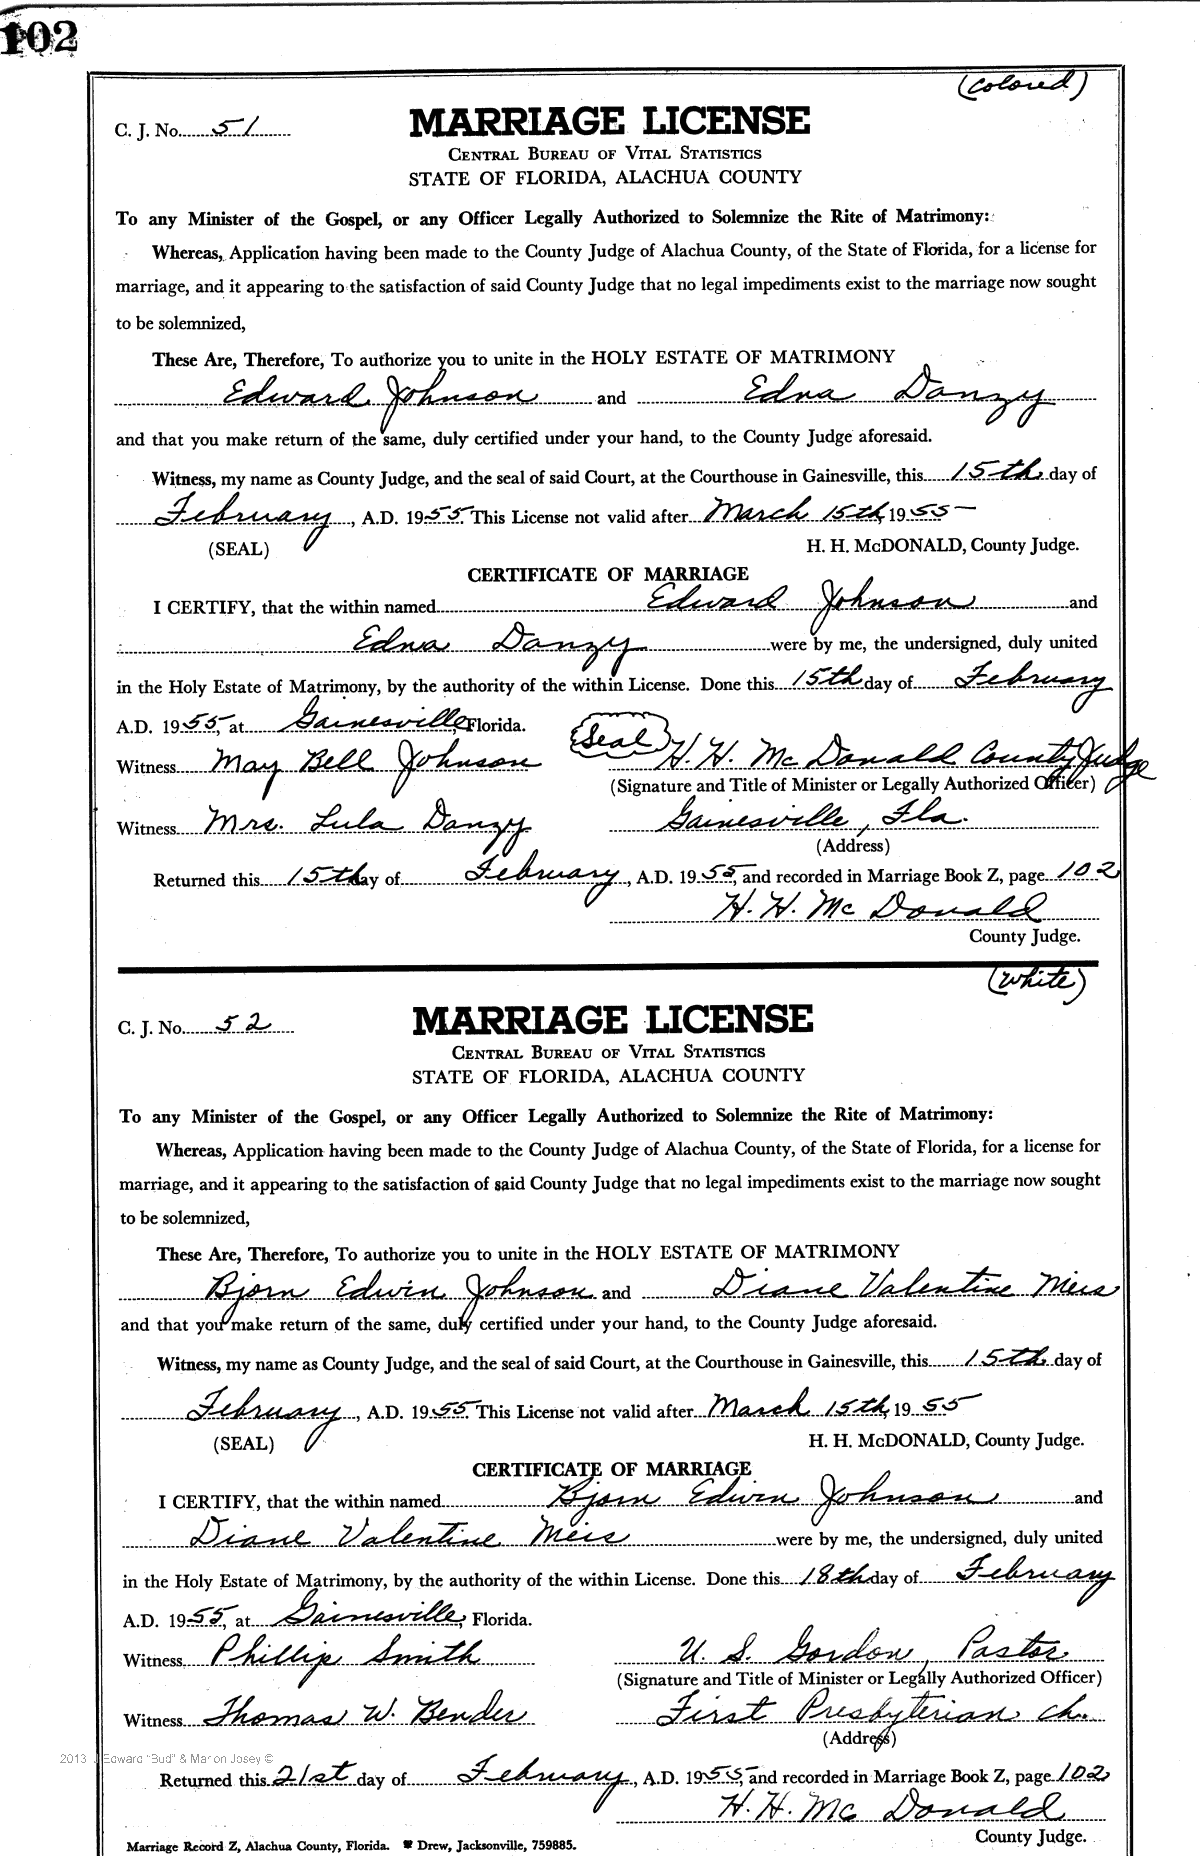 102
(Colored)
C. J. No. 51
MARRIAGE LICENSE
CENTRAL BUREAU OF VITAL STATISTICS
STATE OF FLORIDA, ALACHUA COUNTY
To any Minister of the Gospel, or any Officer Legally Authorized to Solemnize the Rite of Matrimony:
Whereas, Application having been made to the County Judge of Alachua County, of the State of Florida, for a license for
marriage, and it appearing to the satisfaction of said County Judge that no legal impediments exist to the marriage now sought
to be solemnized,
These Are, Therefore, To authorize you to unite in the HOLY ESTATE OF MATRIMONY
Edward Johnson and Edna Danzy
and that you make return of the same, duly certified under your hand, to the County Judge aforesaid.
Witness, my name as County Judge, and the seal of said Court, at the Courthouse in Gainesville, this 15th day of
February, A.D. 1955. This License not valid after March 15th, 1955
(SEAL) H. H. McDONALD, County Judge.
CERTIFICATE OF MARRIAGE
I CERTIFY, that the within named Edward Johnson and
Edna Danzy were by me, the undersigned, duly united
in the Holy Estate of Matrimony, by the authority of the within License. Done this 15th day of February
A.D. 1955, at Gainesville, Florida.
Seal
Witness May Bell Johnson H. H. McDonald County Judge
(Signature and Title of Minister or Legally Authorized Officer)
Witness Mrs. Lula Danzy Gainesville, Fla.
(Address)
Returned this 15th day of February, A.D. 1955, and recorded in Marriage Book Z, page 102
H. H. McDonald
County Judge.
(White)
C. J. No. 52
MARRIAGE LICENSE
CENTRAL BUREAU OF VITAL STATISTICS
STATE OF FLORIDA, ALACHUA COUNTY
To any Minister of the Gospel, or any Officer Legally Authorized to Solemnize the Rite of Matrimony:
Whereas, Application having been made to the County Judge of Alachua County, of the State of Florida, for a license for
marriage, and it appearing to the satisfaction of said County Judge that no legal impediments exist to the marriage now sought
to be solemnized,
These Are, Therefore, To authorize you to unite in the HOLY ESTATE OF MATRIMONY
Bjorn Edwin Johnson and Diane Valentine Meis
and that you make return of the same, duly certified under your hand, to the County Judge aforesaid.
Witness, my name as County Judge, and the seal of said Court, at the Courthouse in Gainesville, this 15th day of
February, A.D. 1955. This License not valid after March 15th, 1955
(SEAL) H. H. McDONALD, County Judge.
CERTIFICATE OF MARRIAGE
I CERTIFY, that the within named Bjorn Edwin Johnson and
Diane Valentine Meis were by me, the undersigned, duly united
in the Holy Estate of Matrimony, by the authority of the within License. Done this 18th day of February
A.D. 1955, at Gainesville, Florida.
Witness Phillip Smith U. S. Gordon, Pastor
(Signature and Title of Minister or Legally Authorized Officer)
Witness Thomas W. Bender First Presbyterian Ch.
(Address)
2013 J Edward "Bud" & Marion Josey ©
Returned this 21st day of February, A.D. 1955, and recorded in Marriage Book Z, page 102
H. H. McDonald
County Judge.
Marriage Record Z, Alachua County, Florida. Drew, Jacksonville, 759885.